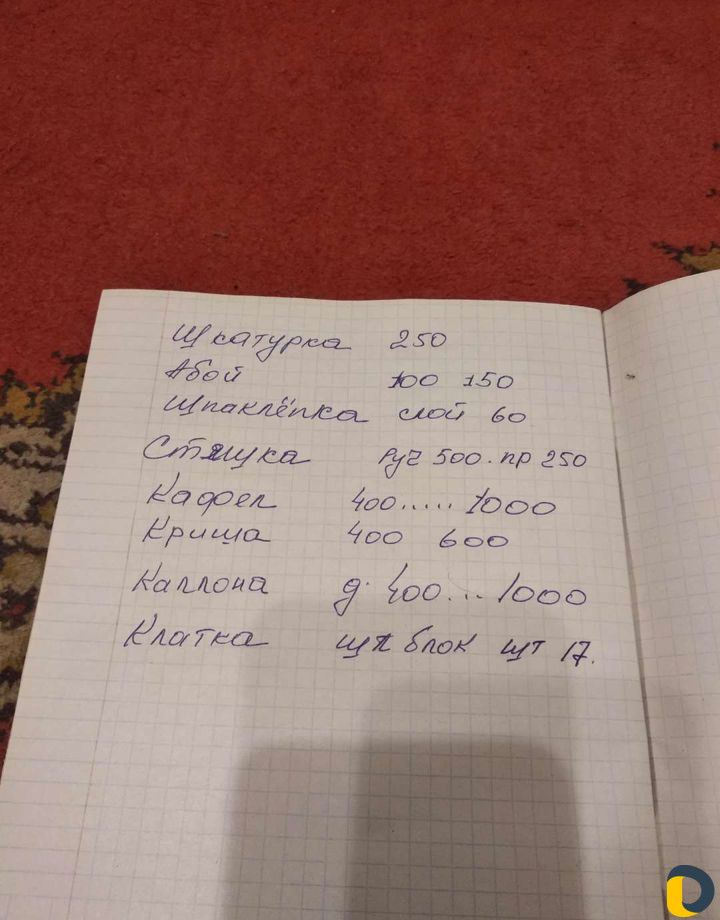 Шкатурка 250
Абой 100 150
Шпаклёпка слой 60
Стяшка руч 500. пр 250
Кафел 400..... 1000
Криша 400 600
Каллона д. 400... 1000
Клатка шл блок шт 17.